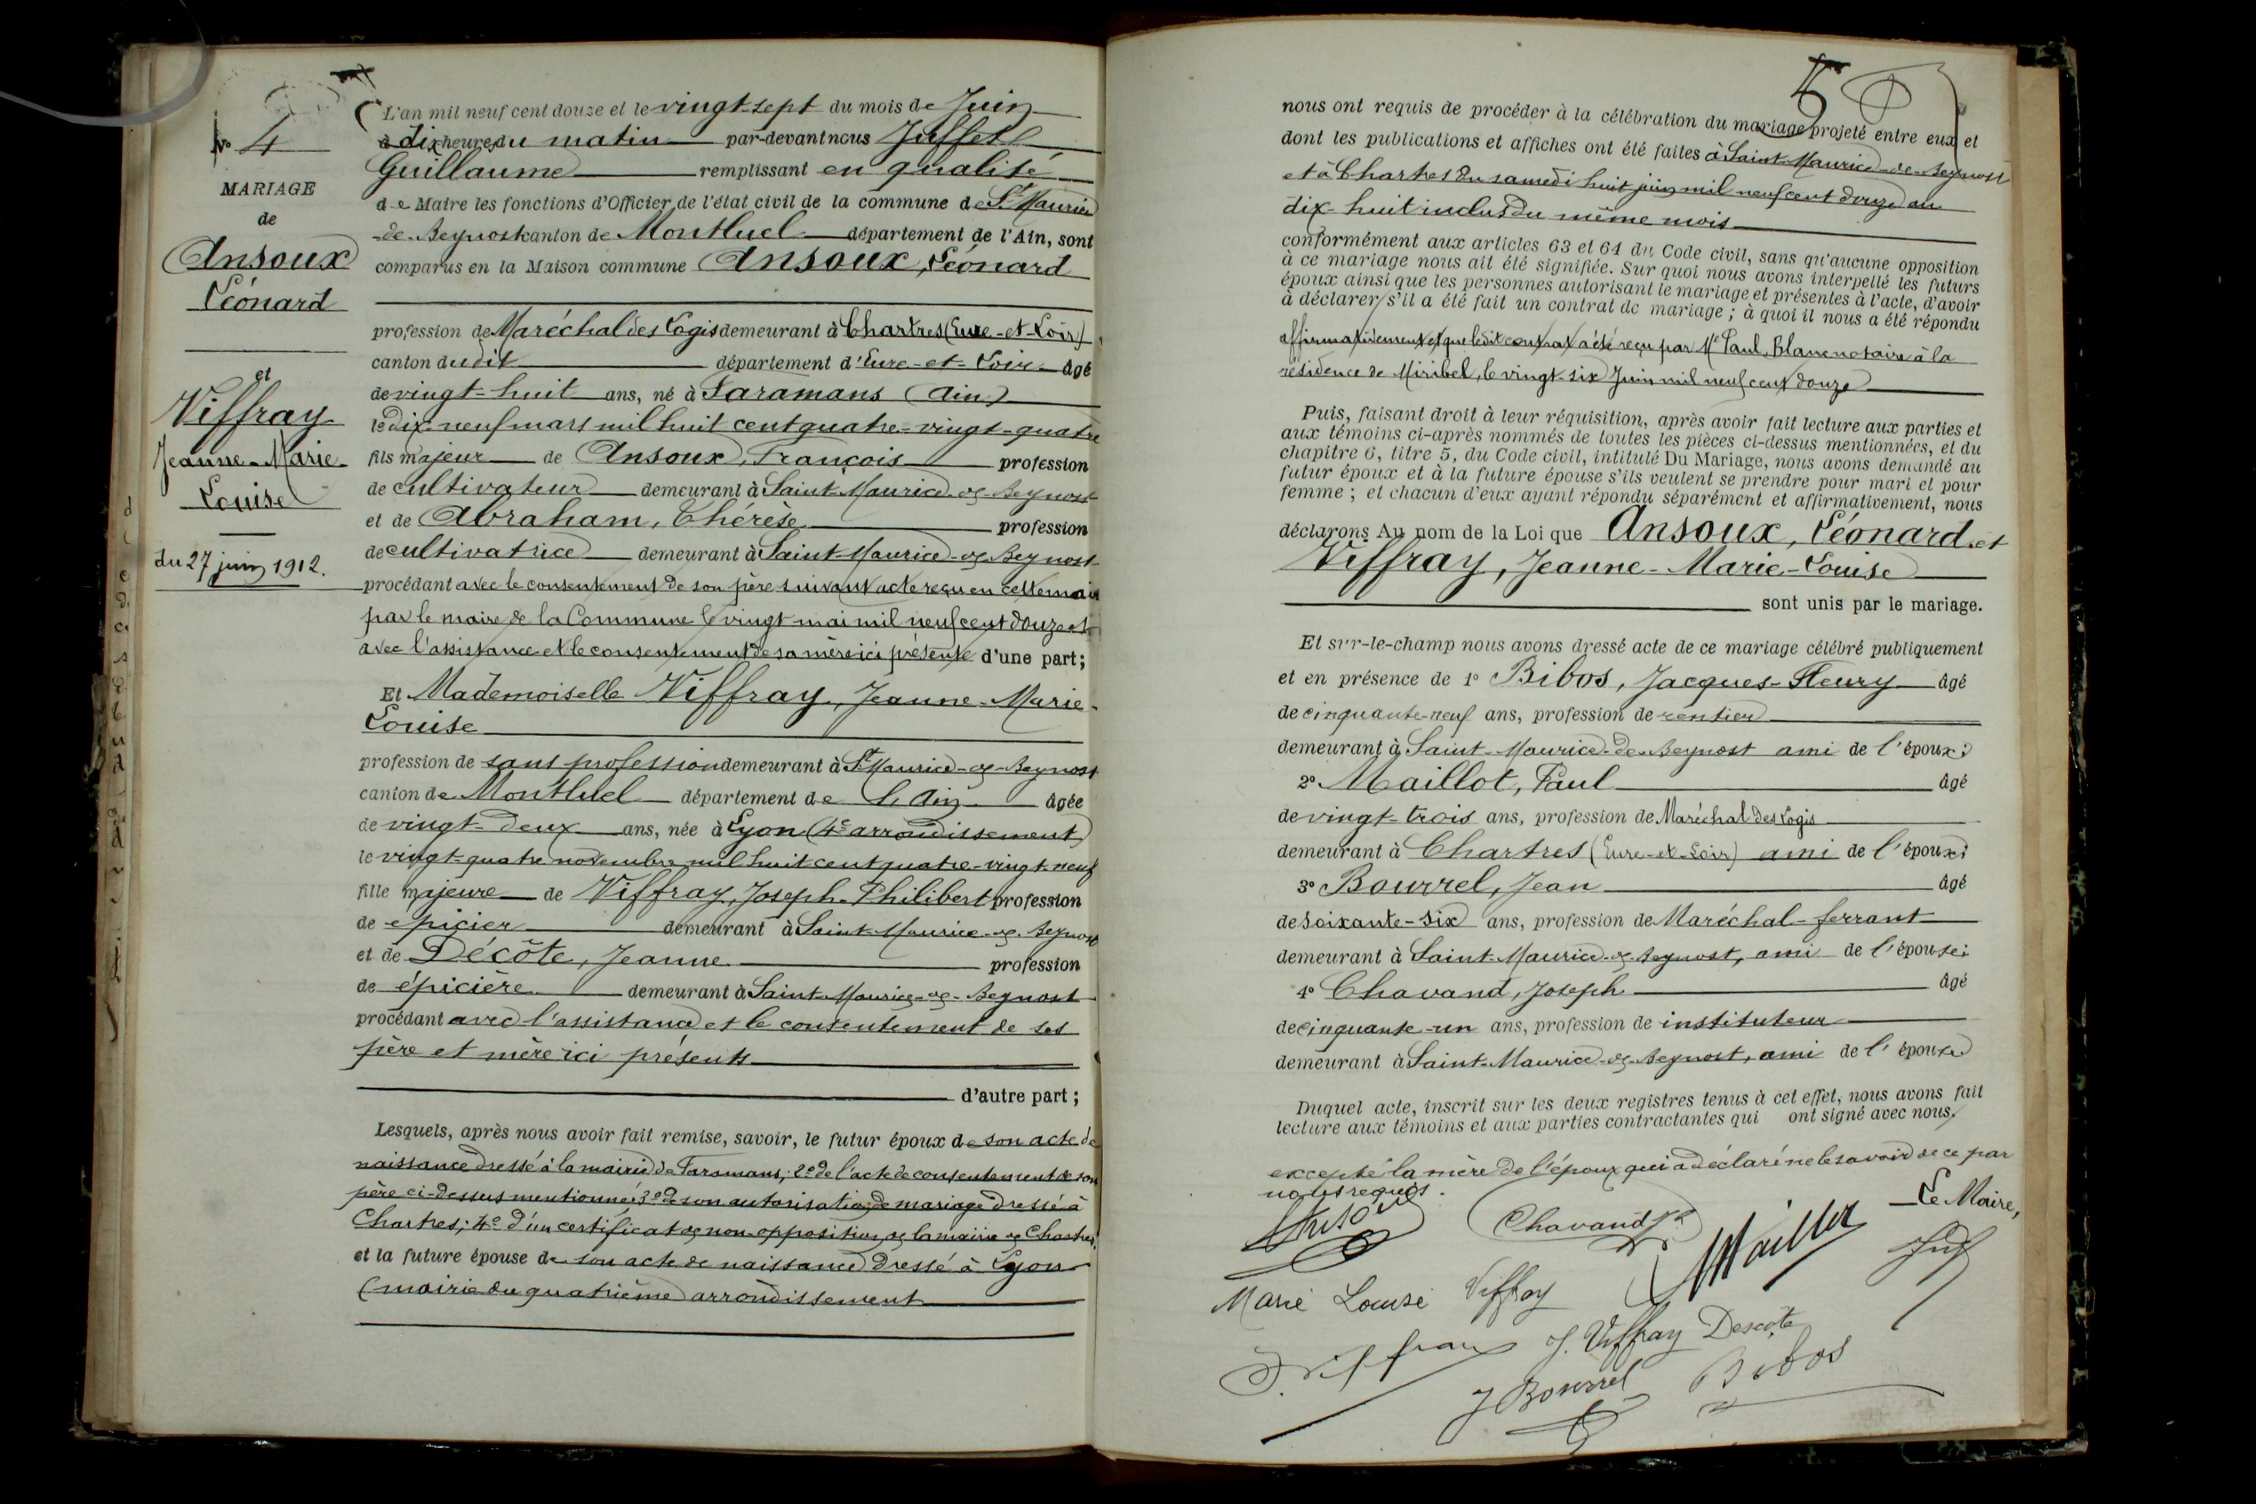 N° 4
MARIAGE
de
Ansoux
Léonard
et
Viffray
Jeanne-Marie-
Louise
du 27 juin 1912.
L'an mil neuf cent douze et le vingt-sept du mois de Juin
à dix heures du matin par-devant nous Juffet
Guillaume remplissant en qualité
de Maire les fonctions d'Officier de l'état civil de la commune de St Maurice
-de-Beynost canton de Montluel département de l'Ain, sont
comparus en la Maison commune Ansoux, Léonard
profession de Maréchal des Logis demeurant à Chartres (Eure-et-Loir)
canton dudit département d'Eure-et-Loir âgé
de vingt-huit ans, né à Faramans (Ain)
le dix-neuf mars mil huit cent quatre-vingt-quatre
fils majeur de Ansoux, François profession
de cultivateur demeurant à Saint-Maurice-de-Beynost
et de Abraham, Thérèse profession
de cultivatrice demeurant à Saint-Maurice-de-Beynost
procédant avec le consentement de son père suivant acte reçu en cette mairie
par le maire de la Commune le vingt mai mil neuf cent douze et
avec l'assistance et le consentement de sa mère ici présente d'une part;
Et Mademoiselle Viffray, Jeanne-Marie-
Louise
profession de sans profession demeurant à St Maurice-de-Beynost
canton de Montluel département de L'Ain âgée
de vingt-deux ans, née à Lyon (4e arrondissement)
le vingt-quatre novembre mil huit cent quatre-vingt-neuf
fille majeure de Viffray, Joseph-Philibert profession
de épicier demeurant à Saint-Maurice-de-Beynost
et de Décôte, Jeanne profession
de épicière demeurant à Saint-Maurice-de-Beynost
procédant avec l'assistance et le consentement de ses
père et mère ici présents
d'autre part;
Lesquels, après nous avoir fait remise, savoir, le futur époux de son acte de
naissance dressé à la mairie de Faramans; 2o de l'acte de consentement de son
père ci-dessus mentionné; 3o de son autorisation de mariage dressé à
Chartres; 4o d'un certificat de non-opposition de la mairie de Chartres,
et la future épouse de son acte de naissance dressé à Lyon
(mairie du quatrième arrondissement
5
nous ont requis de procéder à la célébration du mariage projeté entre eux et
dont les publications et affiches ont été faites à Saint-Maurice-de-Beynost
et à Chartres du samedi huit juin mil neuf cent douze au
dix-huit inclus du même mois
conformément aux articles 63 et 64 du Code civil, sans qu'aucune opposition
à ce mariage nous ait été signifiée. Sur quoi nous avons interpellé les futurs
époux ainsi que les personnes autorisant le mariage et présentes à l'acte, d'avoir
à déclarer s'il a été fait un contrat de mariage; à quoi il nous a été répondu
affirmativement et que ledit contrat a été reçu par Me Paul, Blanc notaire à la
résidence de Miribel, le vingt-six Juin mil neuf cent douze
Puis, faisant droit à leur réquisition, après avoir fait lecture aux parties et
aux témoins ci-après nommés de toutes les pièces ci-dessus mentionnées, et du
chapitre 6, titre 5, du Code civil, intitulé Du Mariage, nous avons demandé au
futur époux et à la future épouse s'ils veulent se prendre pour mari et pour
femme; et chacun d'eux ayant répondu séparément et affirmativement, nous
déclarons Au nom de la Loi que Ansoux, Léonard et
Viffray, Jeanne-Marie-Louise
sont unis par le mariage.
Et sur-le-champ nous avons dressé acte de ce mariage célébré publiquement
et en présence de 1o Bibos, Jacques-Fleury âgé
de cinquante-neuf ans, profession de rentier
demeurant à Saint-Maurice-de-Beynost ami de l'époux;
2o Maillot, Paul âgé
de vingt-trois ans, profession de Maréchal des Logis
demeurant à Chartres (Eure-et-Loir) ami de l'époux;
3o Bourrel, Jean âgé
de soixante-six ans, profession de Maréchal-ferrant
demeurant à Saint-Maurice-de-Beynost, ami de l'épouse;
4o Chavand, Joseph âgé
de cinquante-un ans, profession de instituteur
demeurant à Saint-Maurice-de-Beynost, ami de l'épouse
Duquel acte, inscrit sur les deux registres tenus à cet effet, nous avons fait
lecture aux témoins et aux parties contractantes qui ont signé avec nous,
excepté la mère de l'époux qui a déclaré ne le savoir de ce par
nous requis.
Le Maire,
Ansoux
Chavand Jh
Maillot
Juffet
Marie Louise Viffray
J. Viffray
J. Viffray Descôte
J Bourrel
Bibos